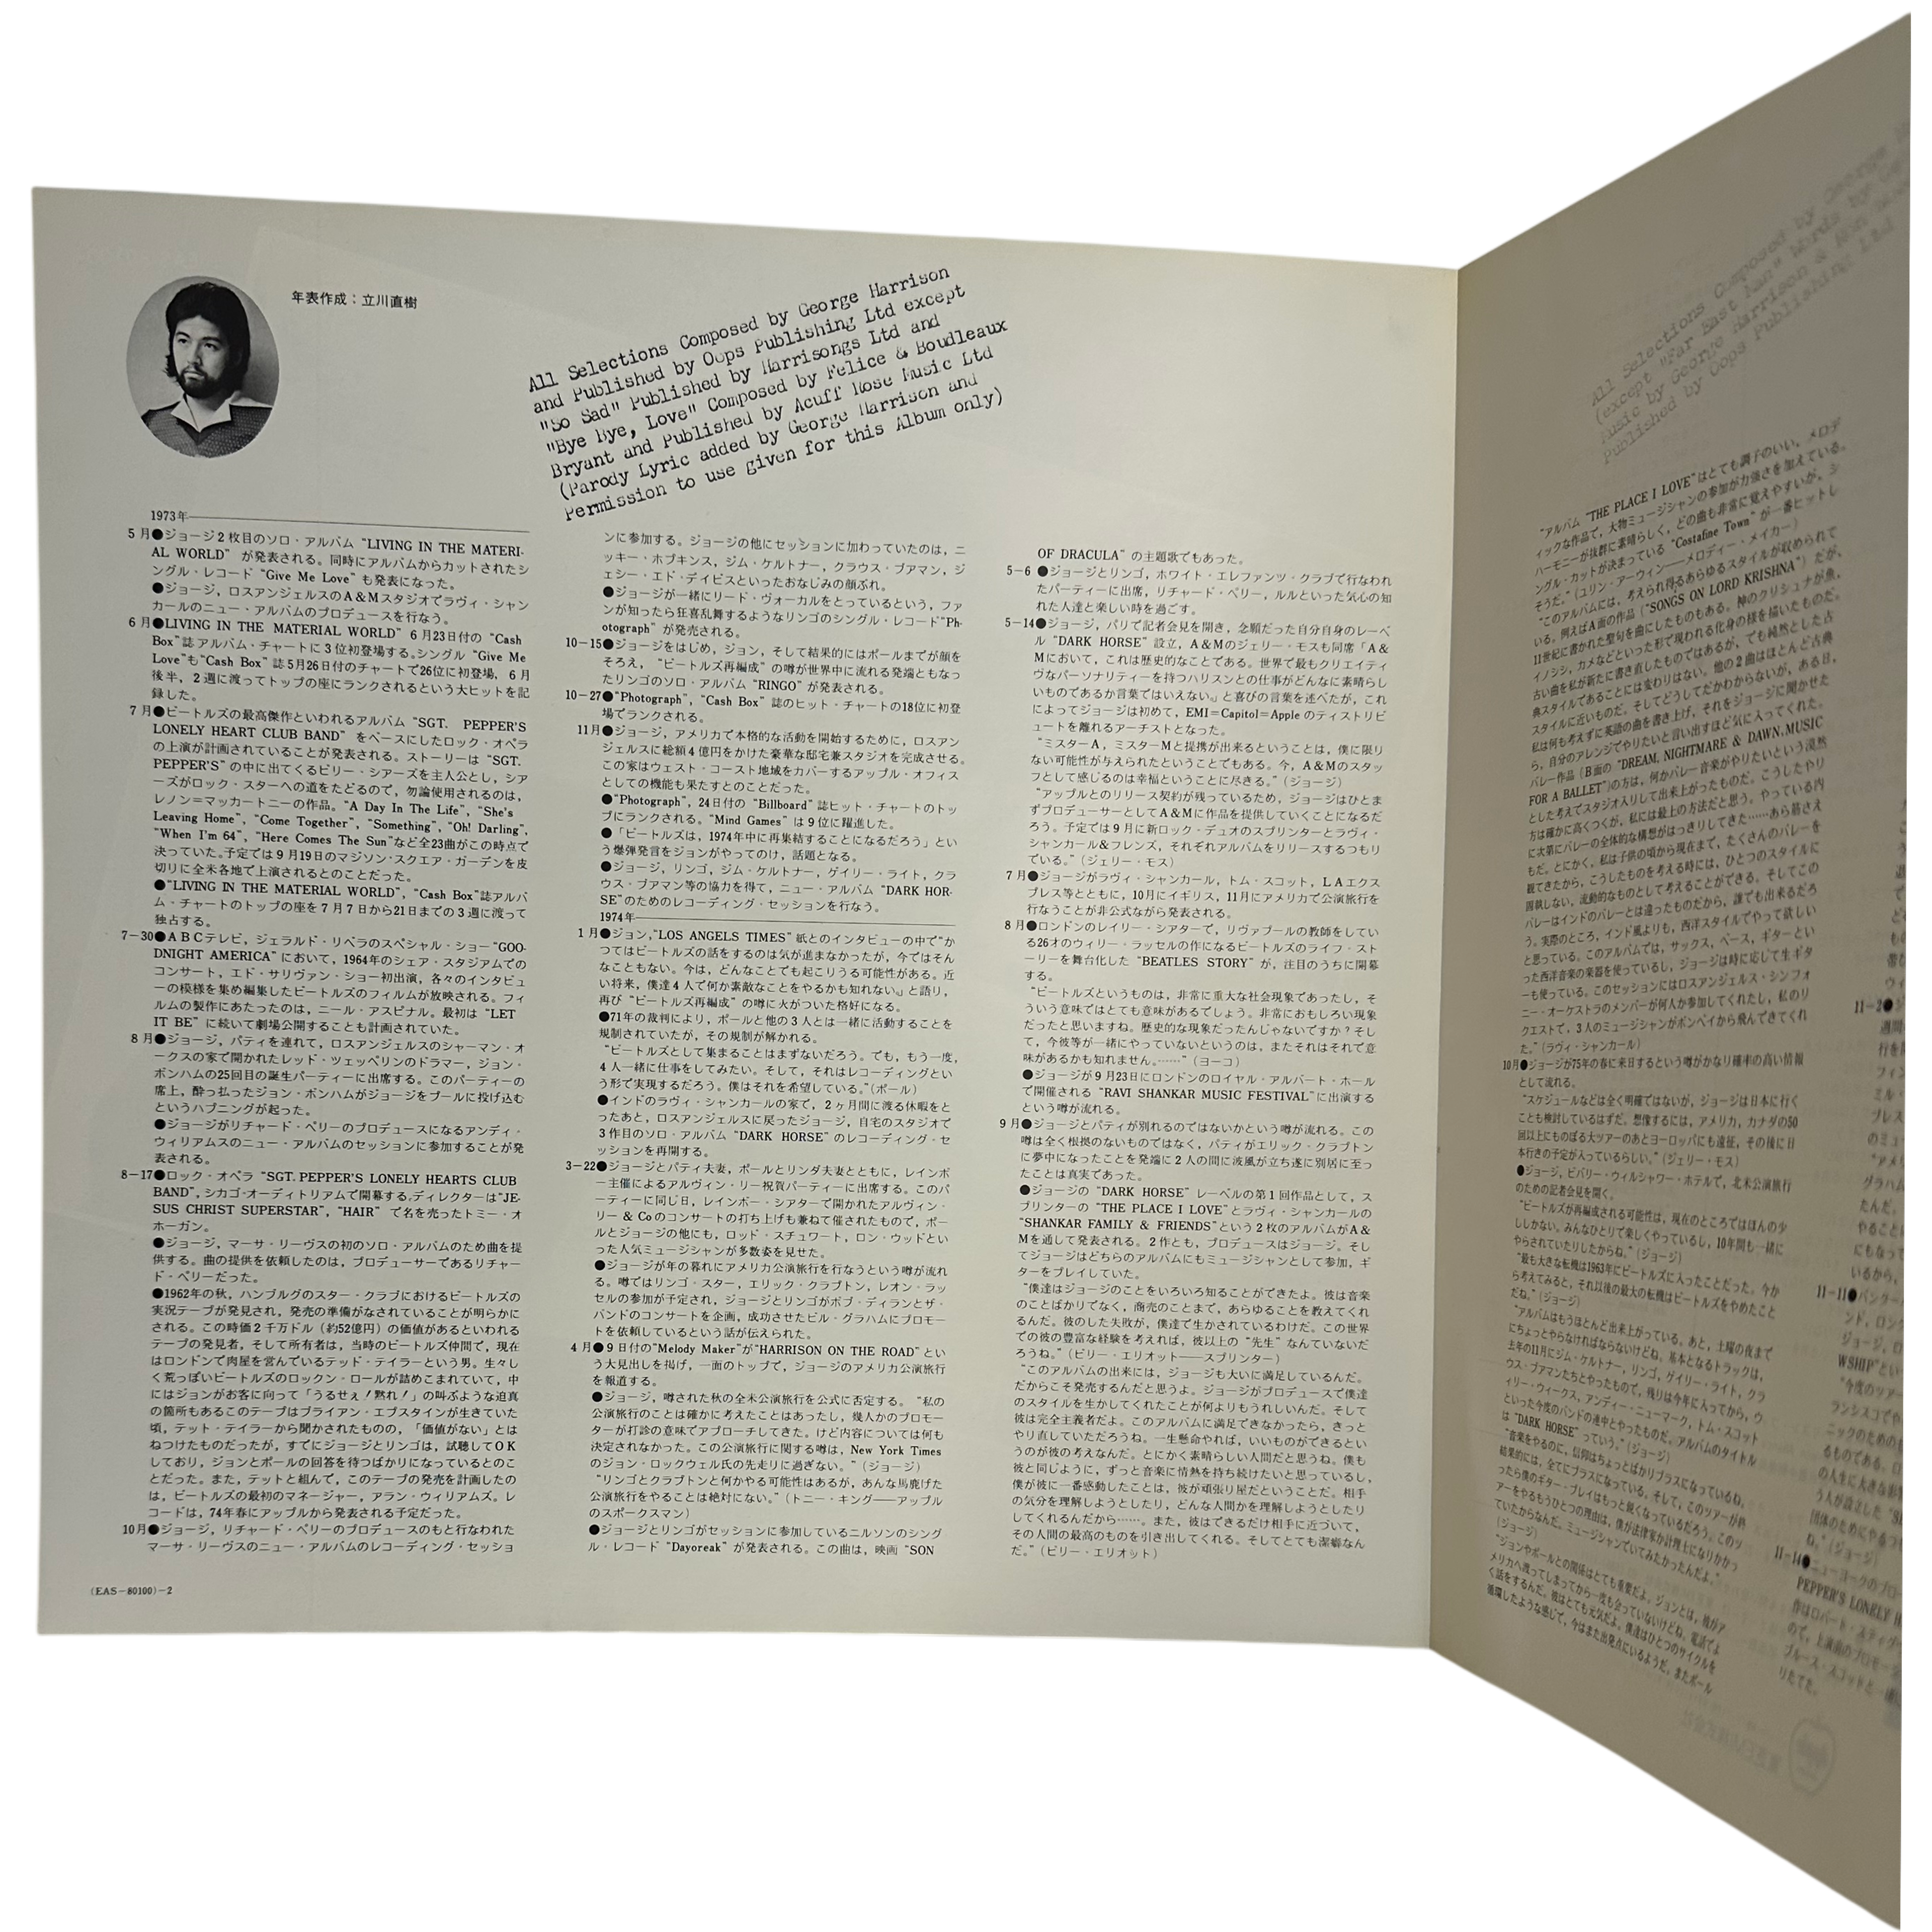 年表作成：立川直樹
All Selections Composed by George Harrison
and Published by Oops Publishing Ltd except
"So Sad" Published by Harrisongs Ltd and
"Bye Bye, Love" Composed by Felice & Boudleaux
Bryant and Published by Acuff Rose Music Ltd
(Parody Lyric added by George Harrison and
Permission to use given for this Album only)
1973年
5月●ジョージ2枚目のソロ・アルバム “LIVING IN THE MATERI-
AL WORLD” が発表される。同時にアルバムからカットされたシ
ングル・レコード “Give Me Love” も発表になった。
●ジョージ，ロスアンジェルスのA＆Mスタジオでラヴィ・シャン
カールのニュー・アルバムのプロデュースを行なう。
6月●LIVING IN THE MATERIAL WORLD” 6月23日付の “Cash
Box”誌アルバム・チャートに3位初登場する。シングル “Give Me
Love”も“Cash Box” 誌5月26日付のチャートで26位に初登場，6月
後半，2週に渡ってトップの座にランクされるという大ヒットを記
録した。
7月●ビートルズの最高傑作といわれるアルバム “SGT. PEPPER'S
LONELY HEART CLUB BAND” をベースにしたロック・オペラ
の上演が計画されていることが発表される。ストーリーは “SGT.
PEPPER'S” の中に出てくるビリー・シアーズを主人公とし，シア
ーズがロック・スターへの道をたどるので，勿論使用されるのは，
レノン＝マッカートニーの作品。“A Day In The Life”，“She's
Leaving Home”，“Come Together”，“Something”，“Oh! Darling”，
“When I'm 64”，“Here Comes The Sun”など全23曲がこの時点で
決っていた。予定では9月19日のマジソン・スクエア・ガーデンを皮
切りに全米各地で上演されるとのことだった。
●“LIVING IN THE MATERIAL WORLD”，“Cash Box”誌アルバ
ム・チャートのトップの座を7月7日から21日までの3週に渡って
独占する。
7−30●ABCテレビ，ジェラルド・リベラのスペシャル・ショー “GOO-
DNIGHT AMERICA” において，1964年のシェア・スタジアムでの
コンサート，エド・サリヴァン・ショー初出演，各々のインタビュ
ーの模様を集め編集したビートルズのフィルムが放映される。フィ
ルムの製作にあたったのは，ニール・アスピナル。最初は “LET
IT BE” に続いて劇場公開することも計画されていた。
8月●ジョージ，パティを連れて，ロスアンジェルスのシャーマン・オ
ークスの家で開かれたレッド・ツェッペリンのドラマー，ジョン・
ボンハムの25回目の誕生パーティーに出席する。このパーティーの
席上，酔っ払ったジョン・ボンハムがジョージをプールに投げ込む
というハプニングが起った。
●ジョージがリチャード・ペリーのプロデュースになるアンディ・
ウィリアムスのニュー・アルバムのセッションに参加することが発
表される。
8−17●ロック・オペラ “SGT. PEPPER'S LONELY HEARTS CLUB
BAND”，シカゴ・オーディトリアムで開幕する。ディレクターは“JE-
SUS CHRIST SUPERSTAR”，“HAIR” で名を売ったトミー・オ
ホーガン。
●ジョージ，マーサ・リーヴスの初のソロ・アルバムのため曲を提
供する。曲の提供を依頼したのは，プロデューサーであるリチャー
ド・ペリーだった。
●1962年の秋，ハンブルグのスター・クラブにおけるビートルズの
実況テープが発見され，発売の準備がなされていることが明らかに
される。この時価2千万ドル（約52億円）の価値があるといわれる
テープの発見者，そして所有者は，当時のビートルズ仲間で，現在
はロンドンで肉屋を営んでいるテッド・テイラーという男。生々し
く荒っぽいビートルズのロックン・ロールが詰めこまれていて，中
にはジョンがお客に向って「うるせぇ！黙れ！」の叫ぶような迫真
の箇所もあるこのテープはブライアン・エプスタインが生きていた
頃，テット・テイラーから聞かされたものの，「価値がない」とは
ねつけたものだったが，すでにジョージとリンゴは，試聴してOK
しており，ジョンとポールの回答を待つばかりになっているとのこ
とだった。また，テットと組んで，このテープの発売を計画したの
は，ビートルズの最初のマネージャー，アラン・ウィリアムズ。レ
コードは，74年春にアップルから発表される予定だった。
10月●ジョージ，リチャード・ペリーのプロデュースのもと行なわれた
マーサ・リーヴスのニュー・アルバムのレコーディング・セッショ
(EAS−80100)−2
ンに参加する。ジョージの他にセッションに加わっていたのは，ニ
ッキー・ホプキンス，ジム・ケルトナー，クラウス・ブアマン，ジ
ェシー・エド・デイビスといったおなじみの顔ぶれ。
●ジョージが一緒にリード・ヴォーカルをとっているという，ファ
ンが知ったら狂喜乱舞するようなリンゴのシングル・レコード“Ph-
otograph” が発売される。
10−15●ジョージをはじめ，ジョン，そして結果的にはポールまでが顔を
そろえ，“ビートルズ再編成” の噂が世界中に流れる発端ともなっ
たリンゴのソロ・アルバム “RINGO” が発表される。
10−27●“Photograph”，“Cash Box” 誌のヒット・チャートの18位に初登
場でランクされる。
11月●ジョージ，アメリカで本格的な活動を開始するために，ロスアン
ジェルスに総額4億円をかけた豪華な邸宅兼スタジオを完成させる。
この家はウェスト・コースト地域をカバーするアップル・オフィス
としての機能も果たすとのことだった。
●“Photograph”，24日付の “Billboard” 誌ヒット・チャートのトッ
プにランクされる。“Mind Games” は9位に躍進した。
●「ビートルズは，1974年中に再集結することになるだろう」とい
う爆弾発言をジョンがやってのけ，話題となる。
●ジョージ，リンゴ，ジム・ケルトナー，ゲイリー・ライト，クラ
ウス・ブアマン等の協力を得て，ニュー・アルバム “DARK HOR-
SE”のためのレコーディング・セッションを行なう。
1974年
1月●ジョン，“LOS ANGELS TIMES” 紙とのインタビューの中で“か
つてはビートルズの話をするのは気が進まなかったが，今ではそん
なこともない。今は，どんなことでも起こりうる可能性がある。近
い将来，僕達4人で何か素敵なことをやるかも知れない。」と語り，
再び “ビートルズ再編成” の噂に火がついた格好になる。
●71年の裁判により，ポールと他の3人とは一緒に活動することを
規制されていたが，その規制が解かれる。
“ビートルズとして集まることはまずないだろう。でも，もう一度，
4人一緒に仕事をしてみたい。そして，それはレコーディングとい
う形で実現するだろう。僕はそれを希望している。”（ポール）
●インドのラヴィ・シャンカールの家で，2ヶ月間に渡る休暇をと
ったあと，ロスアンジェルスに戻ったジョージ，自宅のスタジオで
3作目のソロ・アルバム “DARK HORSE” のレコーディング・セ
ッションを再開する。
3−22●ジョージとパティ夫妻，ポールとリンダ夫妻とともに，レインボ
ー主催によるアルヴィン・リー祝賀パーティーに出席する。このパ
ーティーに同じ日，レインボー・シアターで開かれたアルヴィン・
リー ＆ Coのコンサートの打ち上げも兼ねて催されたもので，ポー
ルとジョージの他にも，ロッド・スチュワート，ロン・ウッドとい
った人気ミュージシャンが多数姿を見せた。
●ジョージが年の暮れにアメリカ公演旅行を行なうという噂が流れ
る。噂ではリンゴ・スター，エリック・クラプトン，レオン・ラッ
セルの参加が予定され，ジョージとリンゴがボブ・ディランとザ・
バンドのコンサートを企画，成功させたビル・グラハムにプロモー
トを依頼しているという話が伝えられた。
4月●9日付の“Melody Maker”が“HARRISON ON THE ROAD” とい
う大見出しを掲げ，一面のトップで，ジョージのアメリカ公演旅行
を報道する。
●ジョージ，噂された秋の全米公演旅行を公式に否定する。“私の
公演旅行のことは確かに考えたことはあったし，幾人かのプロモー
ターが打診の意味でアプローチしてきた。けど内容については何も
決定されなかった。この公演旅行に関する噂は，New York Times
のジョン・ロックウェル氏の先走りに過ぎない。”（ジョージ）
“リンゴとクラプトンと何かやる可能性はあるが，あんな馬鹿げた
公演旅行をやることは絶対にない。”（トニー・キング――アップル
のスポークスマン）
●ジョージとリンゴがセッションに参加しているニルソンのシング
ル・レコード “Dayoreak” が発表される。この曲は，映画 “SON
OF DRACULA” の主題歌でもあった。
5−6 ●ジョージとリンゴ，ホワイト・エレファンツ・クラブで行なわれ
たパーティーに出席，リチャード・ペリー，ルルといった気心の知
れた人達と楽しい時を過ごす。
5−14●ジョージ，パリで記者会見を開き，念願だった自分自身のレーベ
ル “DARK HORSE” 設立，A＆Mのジェリー・モスも同席「A＆
Mにおいて，これは歴史的なことである。世界で最もクリエイティ
ヴなパーソナリティーを持つハリスンとの仕事がどんなに素晴らし
いものであるか言葉ではいえない。」と喜びの言葉を述べたが，これ
によってジョージは初めて，EMI＝Capitol＝Apple のティストリビ
ュートを離れるアーチストとなった。
“ミスターA，ミスターMと提携が出来るということは，僕に限り
ない可能性が与えられたということでもある。今，A＆Mのスタッ
フとして感じるのは幸福ということに尽きる。”（ジョージ）
“アップルとのリリース契約が残っているため，ジョージはひとま
ずプロデューサーとしてA＆Mに作品を提供していくことになるだ
ろう。予定では9月に新ロック・デュオのスプリンターとラヴィ・
シャンカール＆フレンズ，それぞれアルバムをリリースするつもり
でいる。”（ジェリー・モス）
7月●ジョージがラヴィ・シャンカール，トム・スコット，LAエクス
プレス等とともに，10月にイギリス，11月にアメリカで公演旅行を
行なうことが非公式ながら発表される。
8月●ロンドンのレイリー・シアターで，リヴァプールの教師をしてい
る26才のウィリー・ラッセルの作になるビートルズのライフ・スト
ーリーを舞台化した “BEATLES STORY” が，注目のうちに開幕
する。
“ビートルズというものは，非常に重大な社会現象であったし，そ
ういう意味ではとても意味があるでしょう。非常におもしろい現象
だったと思いますね。歴史的な現象だったんじゃないですか？そし
て，今彼等が一緒にやっていないというのは，またそれはそれで意
味があるかも知れません。……”（ヨーコ）
●ジョージが9月23日にロンドンのロイヤル・アルバート・ホール
で開催される “RAVI SHANKAR MUSIC FESTIVAL”に出演する
という噂が流れる。
9月●ジョージとパティが別れるのではないかという噂が流れる。この
噂は全く根拠のないものではなく，パティがエリック・クラプトン
に夢中になったことを発端に2人の間に波風が立ち遂に別居に至っ
たことは真実であった。
●ジョージの “DARK HORSE” レーベルの第1回作品として，ス
プリンターの “THE PLACE I LOVE”とラヴィ・シャンカールの
“SHANKAR FAMILY & FRIENDS”という2枚のアルバムがA＆
Mを通して発表される。2作とも，プロデュースはジョージ。そし
てジョージはどちらのアルバムにもミュージシャンとして参加，ギ
ターをプレイしていた。
“僕達はジョージのことをいろいろ知ることができたよ。彼は音楽
のことばかりでなく，商売のことまで，あらゆることを教えてくれ
るんだ。彼のした失敗が，僕達で生かされているわけだ。この世界
での彼の豊富な経験を考えれば，彼以上の “先生” なんていないだ
ろうね。”（ビリー・エリオット――スプリンター）
“このアルバムの出来には，ジョージも大いに満足しているんだ。
だからこそ発売するんだと思うよ。ジョージがプロデュースで僕達
のスタイルを生かしてくれたことが何よりもうれしいんだ。そして
彼は完全主義者だよ。このアルバムに満足できなかったら，きっと
やり直していただろうね。一生懸命やれば，いいものができるとい
うのが彼の考えなんだ。とにかく素晴らしい人間だと思うね。僕も
彼と同じように，ずっと音楽に情熱を持ち続けたいと思っているし，
僕が彼に一番感動したことは，彼が頑張り屋だということだ。相手
の気分を理解しようとしたり，どんな人間かを理解しようとしたり
してくれるんだから……。また，彼はできるだけ相手に近づいて，
その人間の最高のものを引き出してくれる。そしてとても潔癖なん
だ。”（ビリー・エリオット）
All Selections Composed by George
(except "Far East Man" Words by
Music by George Harrison &
Published by Oops Publishing Ltd
“アルバム “THE PLACE I LOVE”はとても調子のいい，メロデ
ィックな作品で，大物ミュージシャンの参加が力強さを加えている。
ハーモニーが抜群に素晴らしく，どの曲も非常に覚えやすいが，シ
ングル・カットが決まっている “Costafine Town” が一番ヒットし
そうだ。”（ユリン・アーウィン――メロディー・メイカー）
“このアルバムには，考えられ得るあらゆるスタイルが収められて
いる。例えばA面の作品（“SONGS ON LORD KRISHNA”）だが，
11世紀に書かれた聖句を曲にしたものもある。神のクリシュナが魚，
イノシシ，カメなどといった形で現われる化身の様を描いたものだ。
古い曲を私が新たに書き直したものではあるが，でも純然とした古
典スタイルであることには変わりはない。他の2曲はほとんど古典
スタイルに近いものだ。そしてどうしてだかわからないが，ある日，
私は何も考えずに英語の曲を書き上げ，それをジョージに聞かせた
ら，自分のアレンジでやりたいと言い出すほど気に入ってくれた。
バレー作品（B面の “DREAM, NIGHTMARE & DAWN, MUSIC
FOR A BALLET”)の方は，何かバレー音楽がやりたいという漠然
とした考えでスタジオ入りして出来上がったものだ。こうしたやり
方は確かに高くつくが，私には最上の方法だと思う。やっている内
に次第にバレーの全体的な構想がはっきりしてきた……あら筋さえ
もだ。とにかく，私は子供の頃から現在まで，たくさんのバレーを
観てきたから，こうしたものを考える時には，ひとつのスタイルに
固執しない，流動的なものとして考えることができる。そしてこの
バレーはインドのバレーとは違ったものだから，誰でも出来るだろ
う。実際のところ，インド風よりも，西洋スタイルでやって欲しい
と思っている。このアルバムでは，サックス，ベース，ギターとい
った西洋音楽の楽器を使っているし，ジョージは時に応じて生ギタ
ーも使っている。このセッションにはロスアンジェルス・シンフォ
ニー・オーケストラのメンバーが何人か参加してくれたし，私のリ
クエストで，3人のミュージシャンがボンベイから飛んできてくれ
た。”（ラヴィ・シャンカール）
10月●ジョージが75年の春に来日するという噂がかなり確率の高い情報
として流れる。
“スケジュールなどは全く明確ではないが，ジョージは日本に行く
ことも検討しているはずだ。想像するには，アメリカ，カナダの50
回以上にものぼる大ツアーのあとヨーロッパにも遠征，その後に日
本行きの予定が入っているらしい。”（ジェリー・モス）
●ジョージ，ビバリー・ウィルシャワー・ホテルで，北米公演旅行
のための記者会見を開く。
“ビートルズが再編成される可能性は，現在のところではほんの少
ししかない。みんなひとりで楽しくやっているし，10年間も一緒に
やらされていたりしたからね。”（ジョージ）
“最も大きな転機は1963年にビートルズに入ったことだった。今か
ら考えてみると，それ以後の最大の転機はビートルズをやめたこと
だね。”（ジョージ）
“アルバムはもうほとんど出来上がっている。あと，土曜の夜まで
にちょっとやらなければならないけどね。基本となるトラックは，
去年の11月にジム・ケルトナー，リンゴ，ゲイリー・ライト，クラ
ウス・ブアマンたちとやったもので，残りは今年に入ってから，ウ
ィリー・ウィークス，アンディー・ニューマーク，トム・スコット
といった今度のバンドの連中とやったものだ。アルバムのタイトル
は “DARK HORSE” っていう。”（ジョージ）
“音楽をやるのに，信仰はちょっとばかりプラスになっているね。
結果的には，全てにプラスになっている。そして，このツアーが終
ったら僕のギター・プレイはもっと鋭くなっているだろう。このツ
アーをやるもうひとつの理由は，僕が法律家か計理士になりかかっ
ていたからなんだ。ミュージシャンでいてみたかったんだよ。”
（ジョージ）
“ジョンやポールとの関係はとても重要だよ。ジョンとは，彼がア
メリカへ渡ってしまってから一度も会っていないけどね。電話でよ
く話をするんだ。彼はとても元気だよ。僕達はひとつのサイクルを
循環したような感じで，今はまた出発点にいるようだ。またポール
11−2●
11−11●
11−14●ニューヨークのブロー
PEPPER'S LONELY H